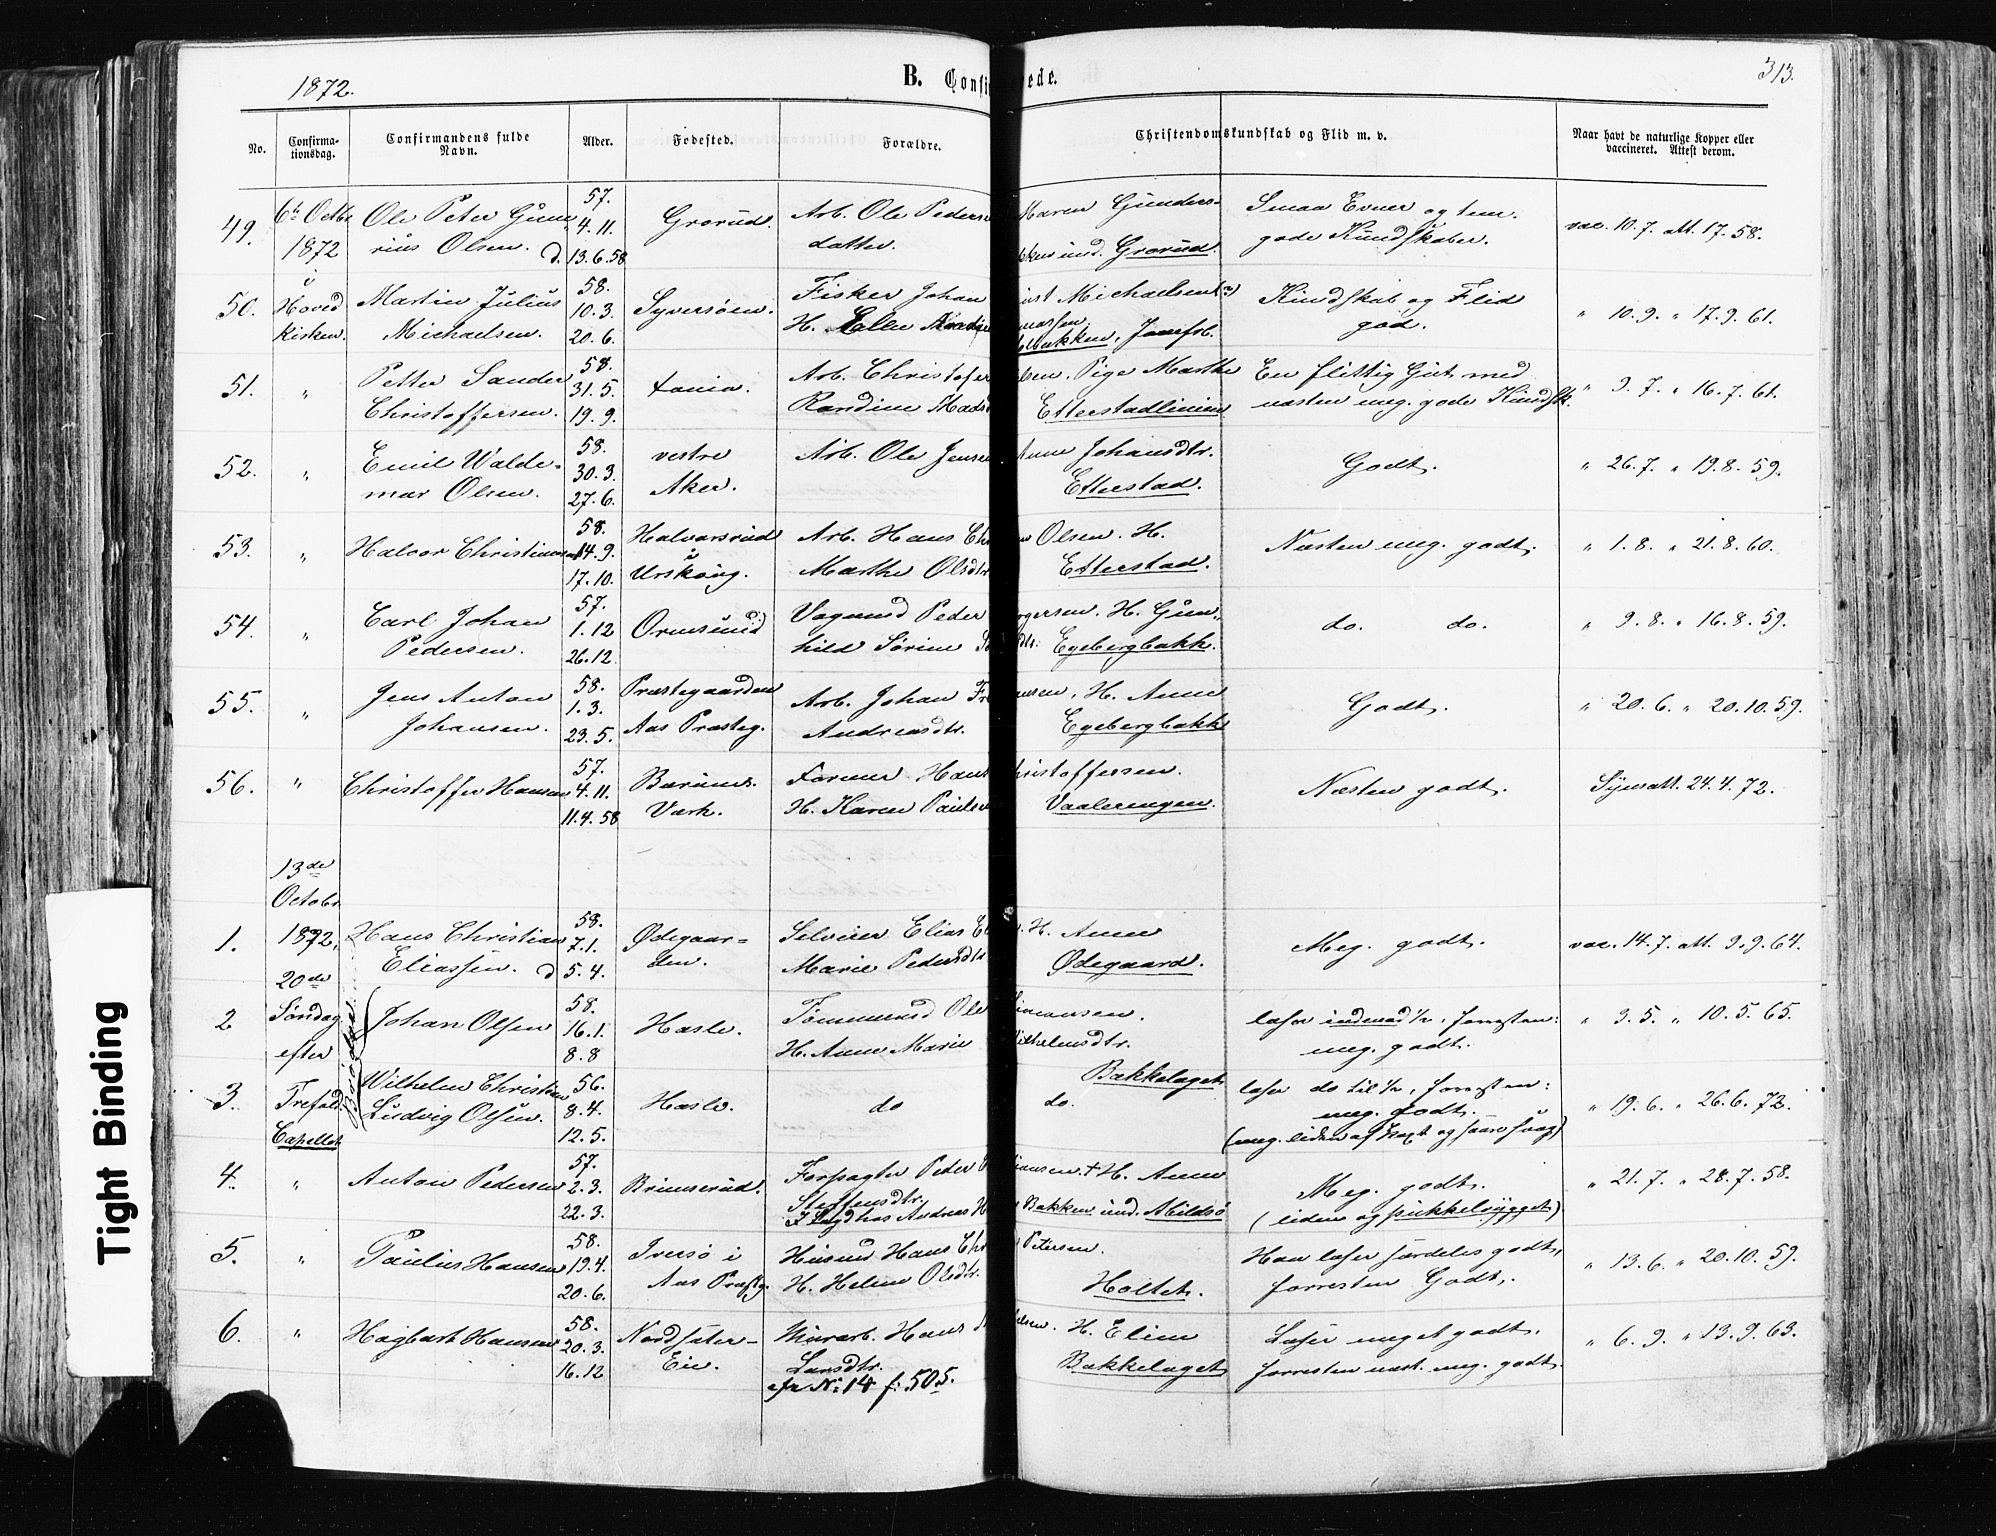 1872.
B. Confi
ede.
313.
No.
Confirma-
tionsdag.
Confirmandens fulde
Navn.
Alder.
Fødested.
Forældre.
Christendomskundskab og Flid m. v.
Naar havt de naturlige Kopper eller
vaccineret. Attest derom.
49.
6te Octbr
1872
i
Hoved
kirken.
Ole Peter Gun
rius Olsen. d.
57.
4.11.
13.6.58
Grorud.
Arb. Ole Peders
datter.
Maren Gunders-
und. Grorud.
Smaa Evner og tem.
gode Kundskaber.
vac. 10.7. att. 17.58.
50.
Martin Julius
Michaelsen.
58.
10.3.
20.6.
Syversøen.
Fisker Johan
H.
Michaelsen
Kundskab og Flid
god.
" 10.9. " 17.9.61.
51.
"
Petter Sander
Christoffersen.
58.
31.5.
19.9.
Arb. Christofer
Randine Mads
Pige Marthe
Etterstadlinien
En flittig Gut med
næsten meg. gode Kundsk.
" 9.7. " 16.7.61.
52.
"
Emil Walde-
mar Olsen.
58.
30.3.
27.6.
vestre
Aker.
Arb. Ole Jensen
Anne Johansdtr.
Etterstad.
Godt.
" 26.7. " 19.8.59.
53.
"
Halvor Christiansen
58.
14.9.
17.10.
Halvorsrud
i
Urskoug.
Arb. Hans Chr
Marthe Olsdtr
Olsen. H.
Etterstad.
Næsten meg. godt.
" 1.8. " 21.8.60.
54.
"
Carl Johan
Pedersen.
57.
1.12
26.12.
Ormsund
Vognmd Peder
hild Sørine
gersen. H. Gun-
dtr. Egebergbakk.
do. do.
" 9.8. " 16.8.59.
55.
"
Jens Anton
Johansen.
58.
1.3.
23.5.
Præstegaarden
Aas Præsteg.
Arb. Johan Fr
Andreasdtr.
ansen, H. Anne
Egebergbakk
Godt.
" 20.6. " 20.10.59.
56.
"
Christoffer Hansen
57.
4.11.
11.4.58
Bærums-
Værk.
Former Hans
H. Karen Pauls
hristoffersen.
Vaalerengen.
Næsten godt.
Synsatt. 24.4.72.
13de
Octobr
1872,
20de
Søndag
efter
Trefold.
Capellet
1.
Hans Christian
Eliassen. d
58.
7.1.
5.4.
Ødegaar-
den.
Selveier Elias El
Marie Pedersdtr
H. Anne
Ødegaard.
Meg. godt.
vac. 14.7. att. 9.9.64.
2
Johan Olsen
58.
16.1.
8.8
Hasle.
Tømmermd Ole
H. Anne Marie
imensen.
ilhelmsdtr.
Bakkelaget
læser indenad ½, forresten:
meg. godt.
" 3.5. " 10.5.65.
3.
Wilhelm Christian
Ludvig Olsen.
56.
8.4.
12.5.
Hasle.
do
do.
læser do til ½, forresten:
meg. godt.
" 19.6. " 26.6.72.
4.
"
Anton Pedersen
57.
2.3.
22.3.
Brimsrud.
Forpagter Peder
Steffensdtr.
I Logd hos Andreas H
iansen. † H. Anne
Bakken und. Mildsø
Meg. godt.
(liden og pukkelrygget)
" 21.7. " 28.7.58.
5.
"
Paulius Hansen
58.
19.4.
20.6.
Iversø i
Aas Præstg.
Husmd Hans Chr
H. Helene Olsdtr.
Petersen.
Holtet.
Han læser særdeles godt,
forresten Godt.
" 13.6. " 20.10.59.
6.
"
Hagbart Hansen
58.
20.3.
16.12
Nordsæter-
Eie.
Murarb. Hans
Larsdtr.
cfr No 14 f. 505.
elsen. H. Eline
Bakkelaget
Læser meget godt,
forresten næst. meg. godt.
" 6.9. " 13.9.63.
Tight Binding